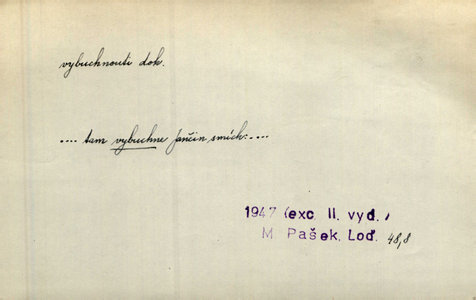 vybuchnouti dok.
.... tam vybuchne Jančin smích: ....
1947 (exc. II. vyd.)
M. Pašek, Loď. 48,8